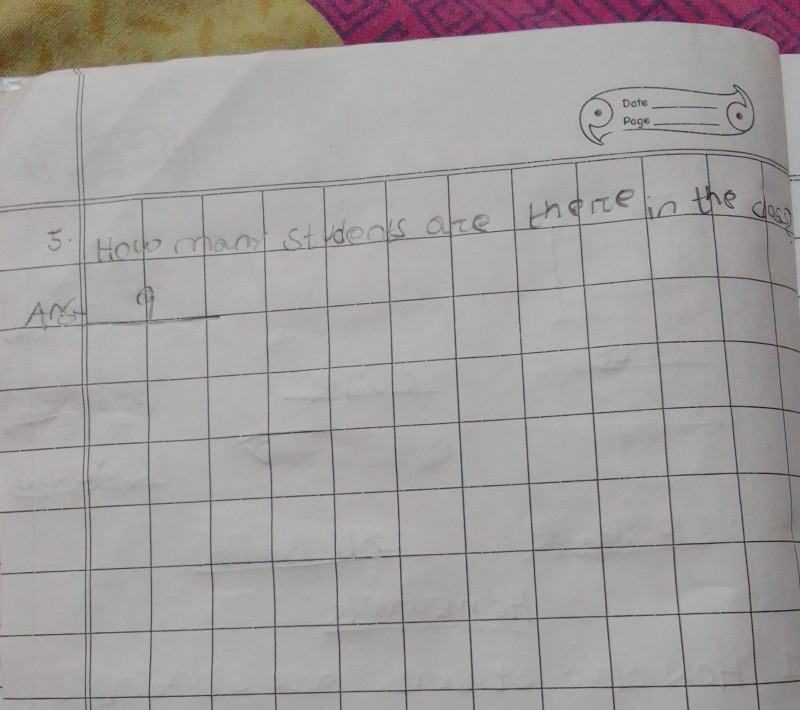 Date
Page
5. How many students are there in the class?
Ans 9